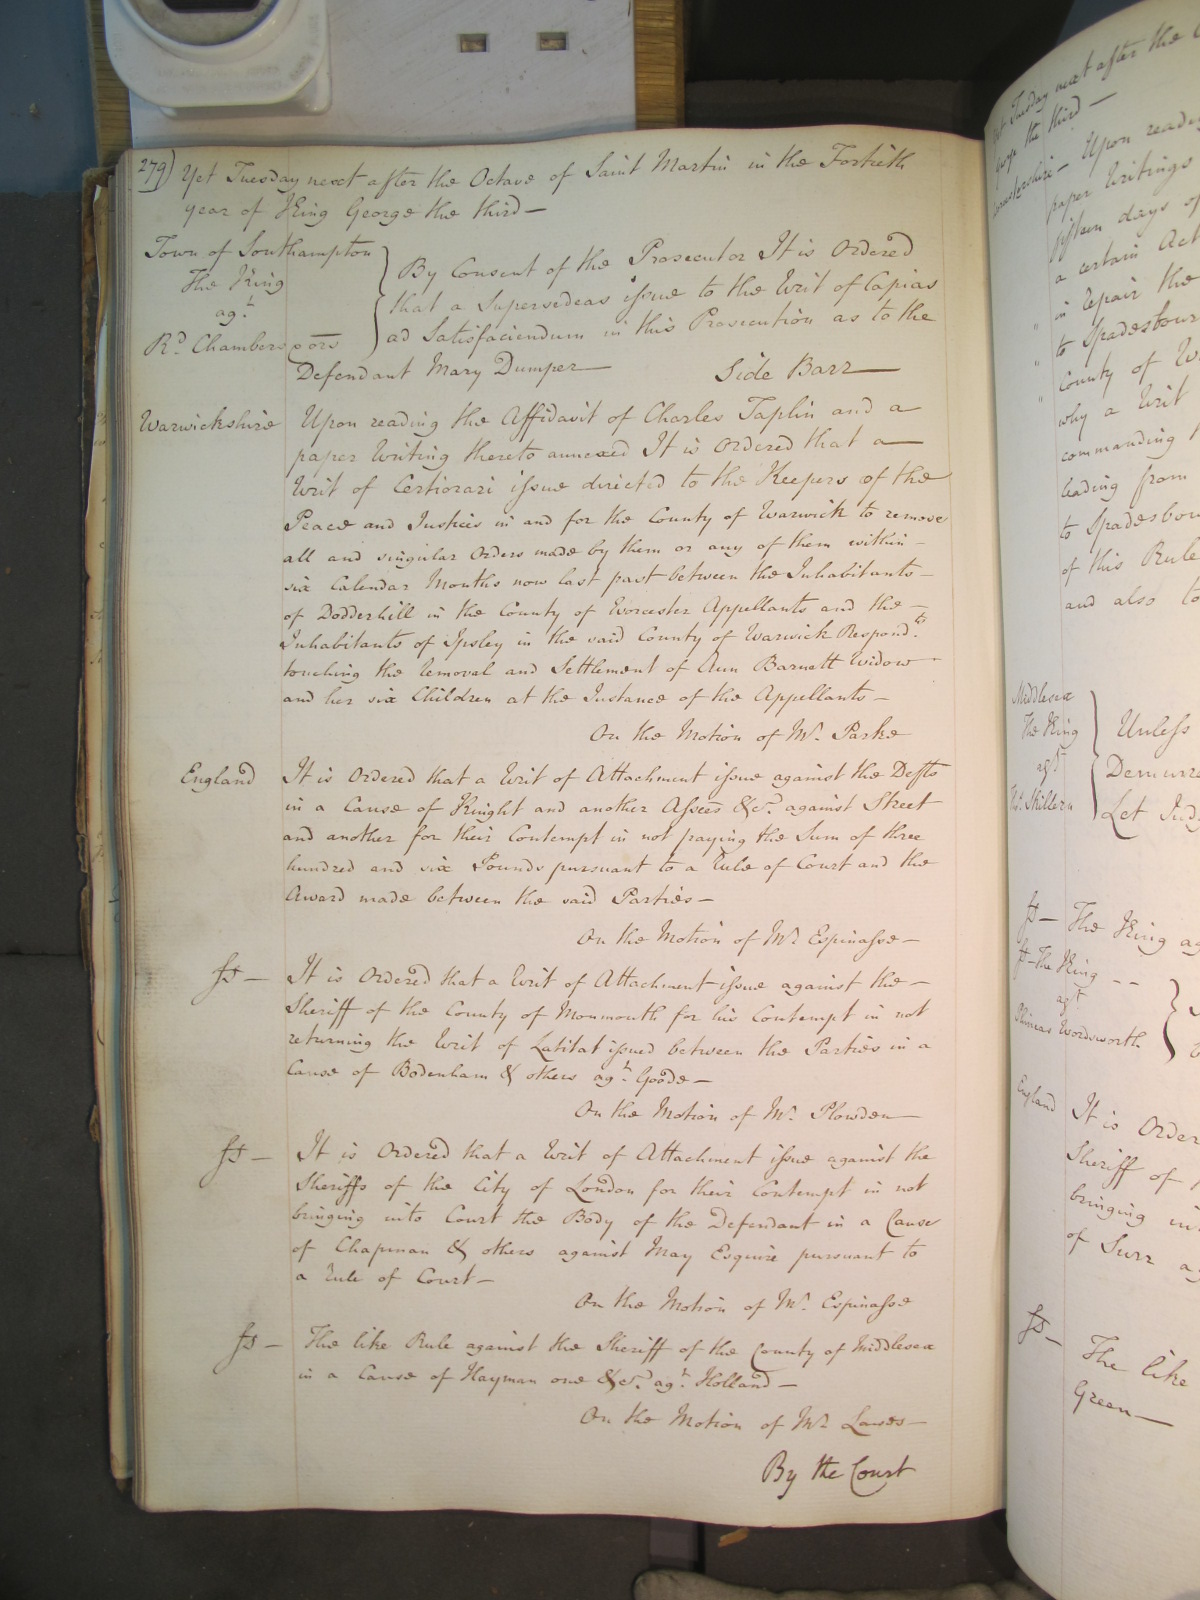 279) Yet Tuesday next after the Octave of Saint Martin in the Fortieth
year of King George the third —
Town of Southampton
The King
agt.
Rd. Chambers & ors
By Consent of the Prosecutor It is Ordered
that a Supersedeas issue to the Writ of Capias
ad Satisfaciendum in this Prosecution as to the
Defendant Mary Dumper — Side Barr —
Warwickshire Upon reading the Affidavit of Charles Taplin and a
paper Writing thereto annexed It is Ordered that a —
Writ of Certiorari issue directed to the Keepers of the
Peace and Justices in and for the County of Warwick to remove
all and singular Orders made by them or any of them within —
six Calendar Months now last past between the Inhabitants —
of Dodderhill in the County of Worcester Appellants and the —
Inhabitants of Ipsley in the said County of Warwick Respond.ts
touching the Removal and Settlement of Ann Barnett Widow —
and her six Children at the Instance of the Appellants —
On the Motion of Mr. Parke
England It is Ordered that a Writ of Attachment issue against the Defts
in a Cause of Knight and another Assees &c. against Street
and another for their Contempt in not paying the Sum of three
hundred and six Pounds pursuant to a Rule of Court and the
Award made between the said Parties —
On the Motion of Mr. Espinasse —
ss — It is Ordered that a Writ of Attachment issue against the —
Sheriff of the County of Monmouth for his Contempt in not
returning the Writ of Latitat issued between the Parties in a
Cause of Bodenham & others agt. Goode —
On the Motion of Mr. Plowden —
ss — It is Ordered that a Writ of Attachment issue against the
Sheriffs of the City of London for their Contempt in not
bringing into Court the Body of the Defendant in a Cause
of Chapman & others against May Esquire pursuant to
a Rule of Court —
On the Motion of Mr. Espinasse
ss — The like Rule against the Sheriff of the County of Middlesex
in a Cause of Hayman one &c. agt. Holland —
On the Motion of Mr. Lawes —
By the Court
Yet Tuesday next after the
George the third —
Upon readi
paper Writings
fifteen days of
a certain Act
in repair the
to Spadesbour
County of W
why a Writ
commanding
leading from
to Spadesbour
of this Rule
and also to
Middlesex
The King
agt
Skillern
Unless
Demurre
Let Jud
ss — The King ag
ss — The King
agt
Wordsworth
England It is Order
Sheriff of
bringing in
of Surr ag
ss —
The like
Green —